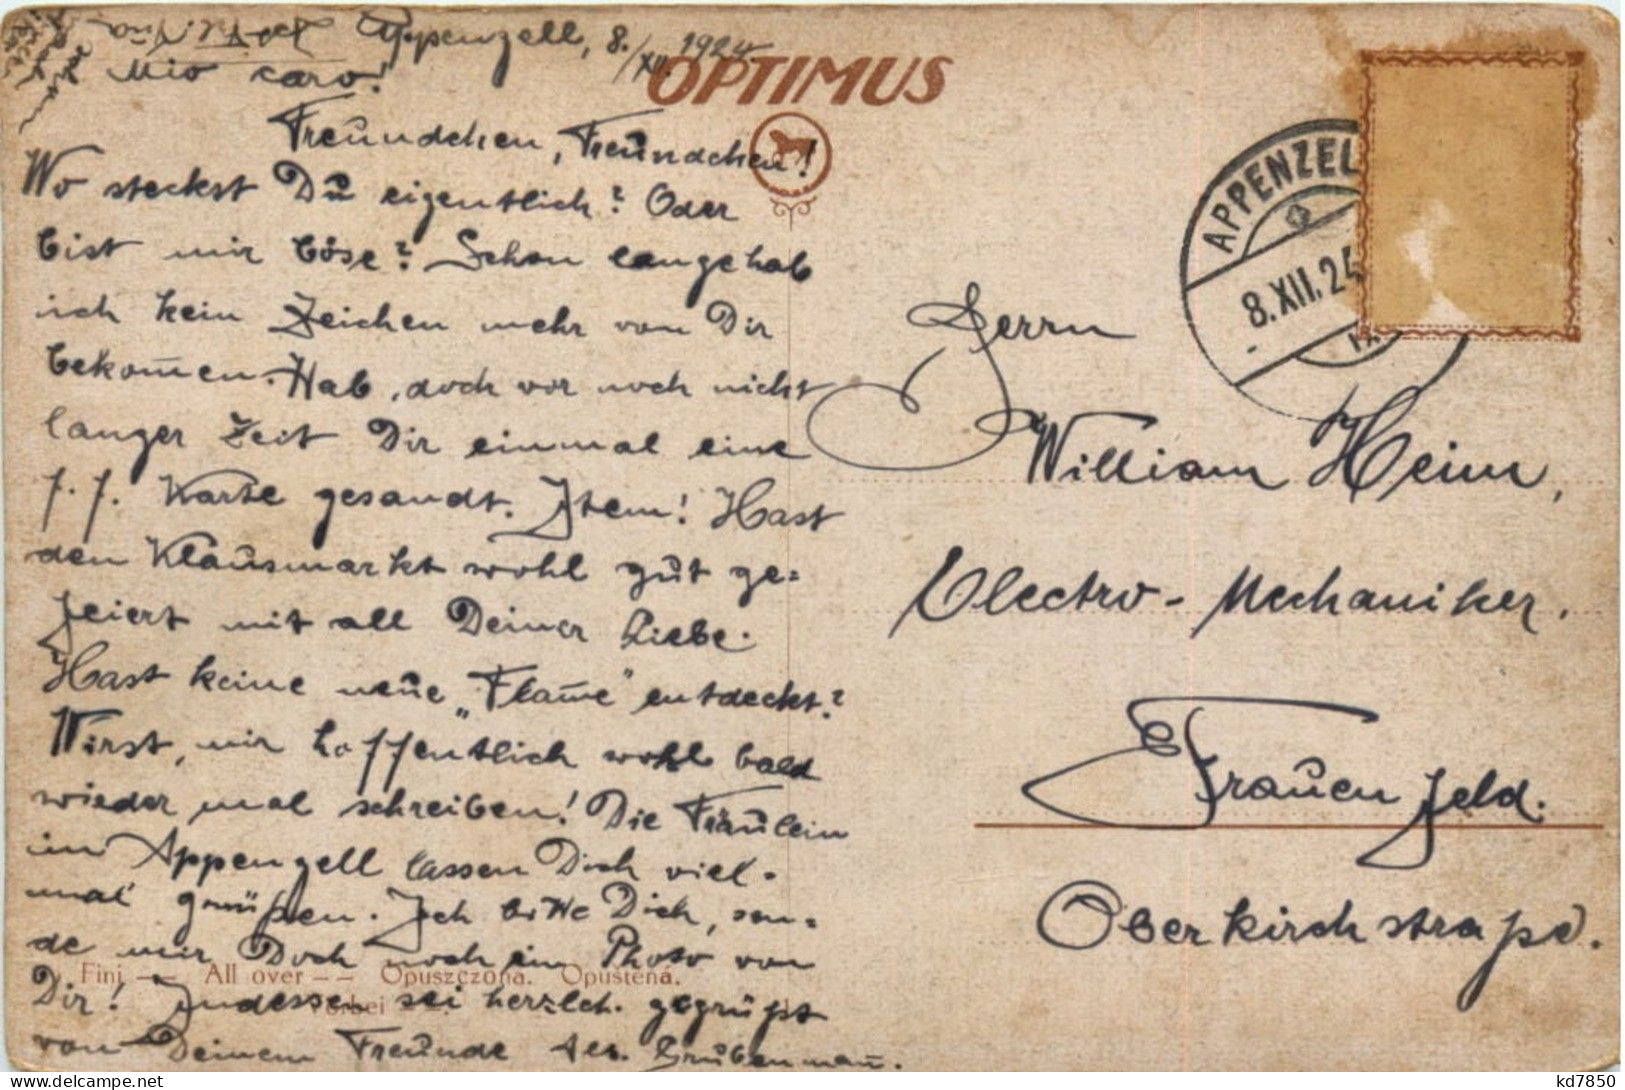 Appenzell, 8./XII. 1924
Mio caro!
Freundchen, Freundchen!
Wo steckst Du eigentlich? Oder
bist mir böse? Schon lange hab
ich kein Zeichen mehr von Dir
bekom̅en. Hab, doch vor noch nicht
langer Zeit Dir einmal eine
f. f. Karte gesandt. Item! Hast
den Klausmarkt wohl gut ge=
feiert mit all Deiner Liebe.
Hast keine neue „Flam̅e" entdeckt?
Wirst, mir hoffentlich wohl bald
wieder mal schreiben! Die Fräulein
in Appenzell lassen Dich viel-
mal grüßen. Ich bitte Dich, sen=
de mir Doch noch ein Photo von
Dir! Indessen sei herzlch. gegrüßt
von Deinem Freunde Grubenman̅.
OPTIMUS
APPENZEL
8.XII.24
Herrn
William Heim,
Electro-Mechaniker.
Frauenfeld.
Oberkirchstraße.
Fini — — All over — — Opuszczona. Opuštěná.
Vorbei
kd7850